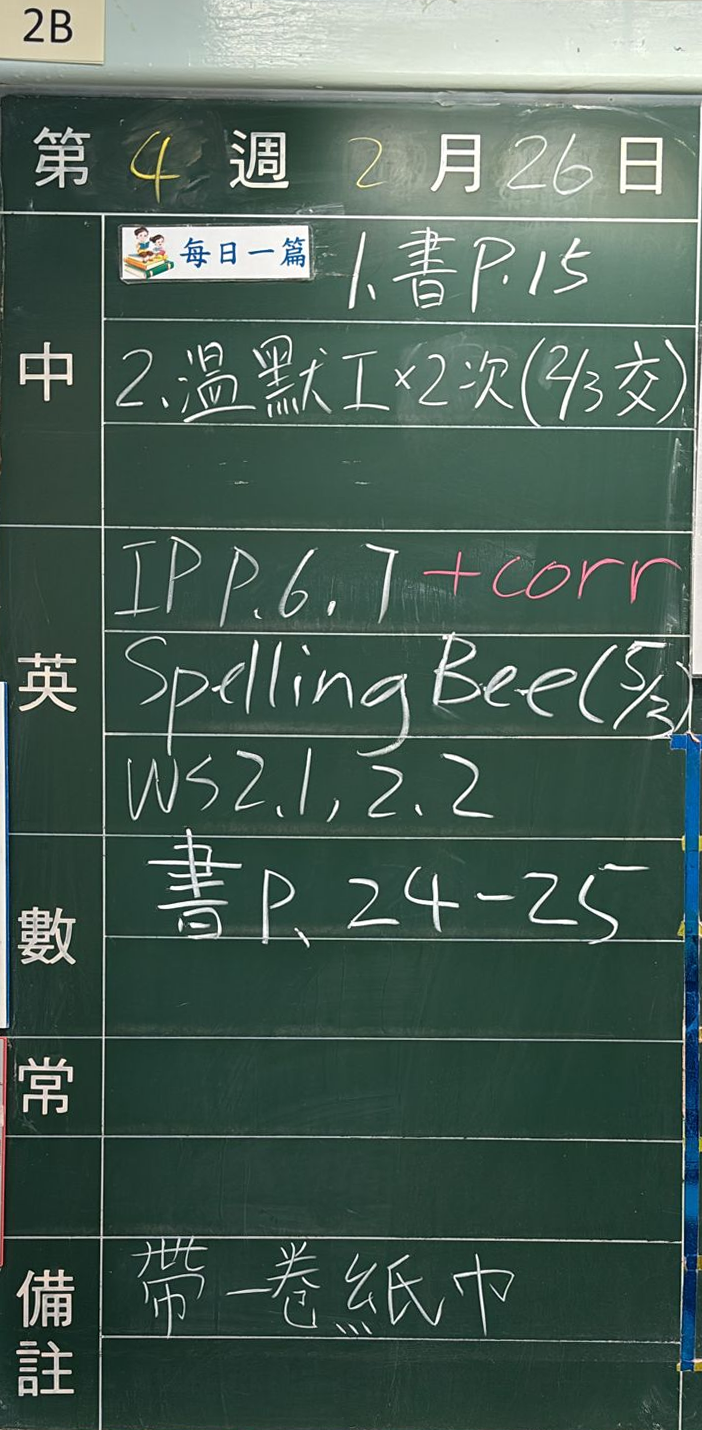 2B
第 4 週 2 月 26 日
中
每日一篇 1、書P.15
2、溫默工×2次(2/3交)
英
IP P.6、7 +corr
Spelling Bee(5/3)
WS2.1, 2.2
數
書P、24-25
常
備註
帶一卷紙巾